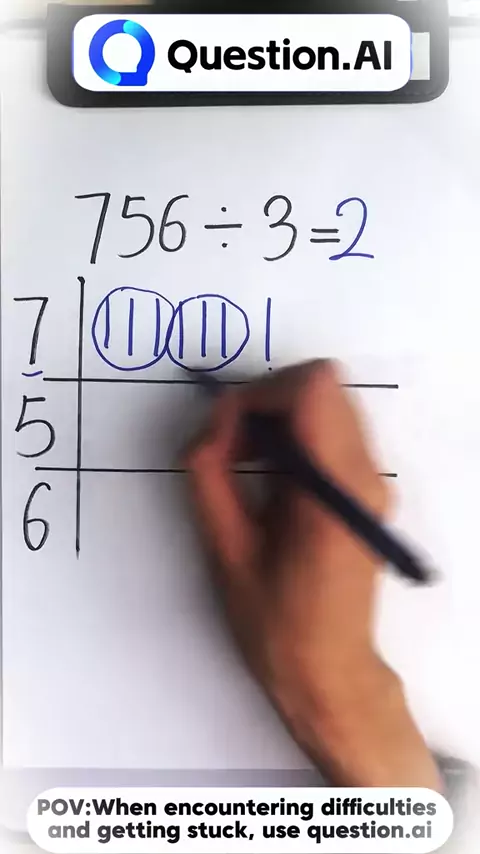 Question.AI
756÷3=2
7
5
6
POV:When encountering difficulties
and getting stuck, use question.ai